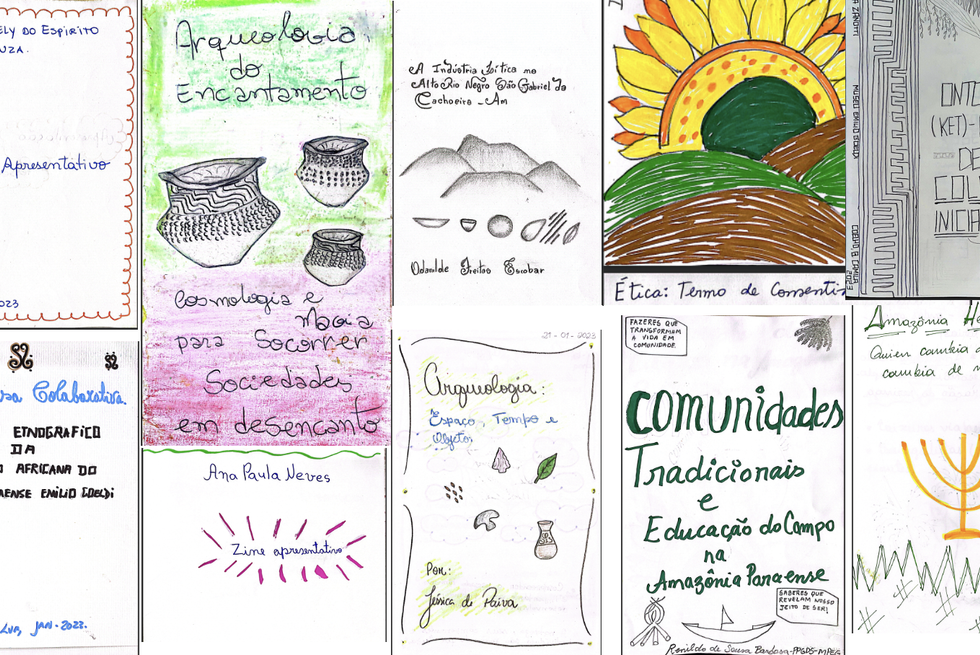 ELY DO ESPIRITO
UZA.
Apresentativo
2023
Colaborativa.
ETNOGRAFICO
DA
AFRICANA DO
AENSE EMILIO GOELDI
JAN-2023.
Arqueologia
do
Encantamento
Cosmologia e
Magia
para Socorrer
Sociedades
em desencanto
Ana Paula Neves
Zine apresentativo
A Indústria Lítica no
Alto Rio Negro São Gabriel da
Cachoeira - Am
Odanilde Freitas Escobar
21-01-2023
Arqueologia:
Espaço, Tempo e
Objeto,
Por:
Jéssica de Paiva
Ética: Termo de Consenti
FAZERES QUE
TRANSFORMAM
A VIDA EM
COMUNIDADE.
COMUNIDADES
Tradicionais
e
Educação do Campo
na
Amazônia Paraense
SABERES QUE
REVELAM NOSSO
JEITO DE SER!
Ronildo de Sousa Barbosa-PPGDS-MPEG
MUSEU EMILIO GOELDI
2023
ONTO
(KET)-
DE
COL
INICIA
Amazônia He
Quien cambia
cambia de